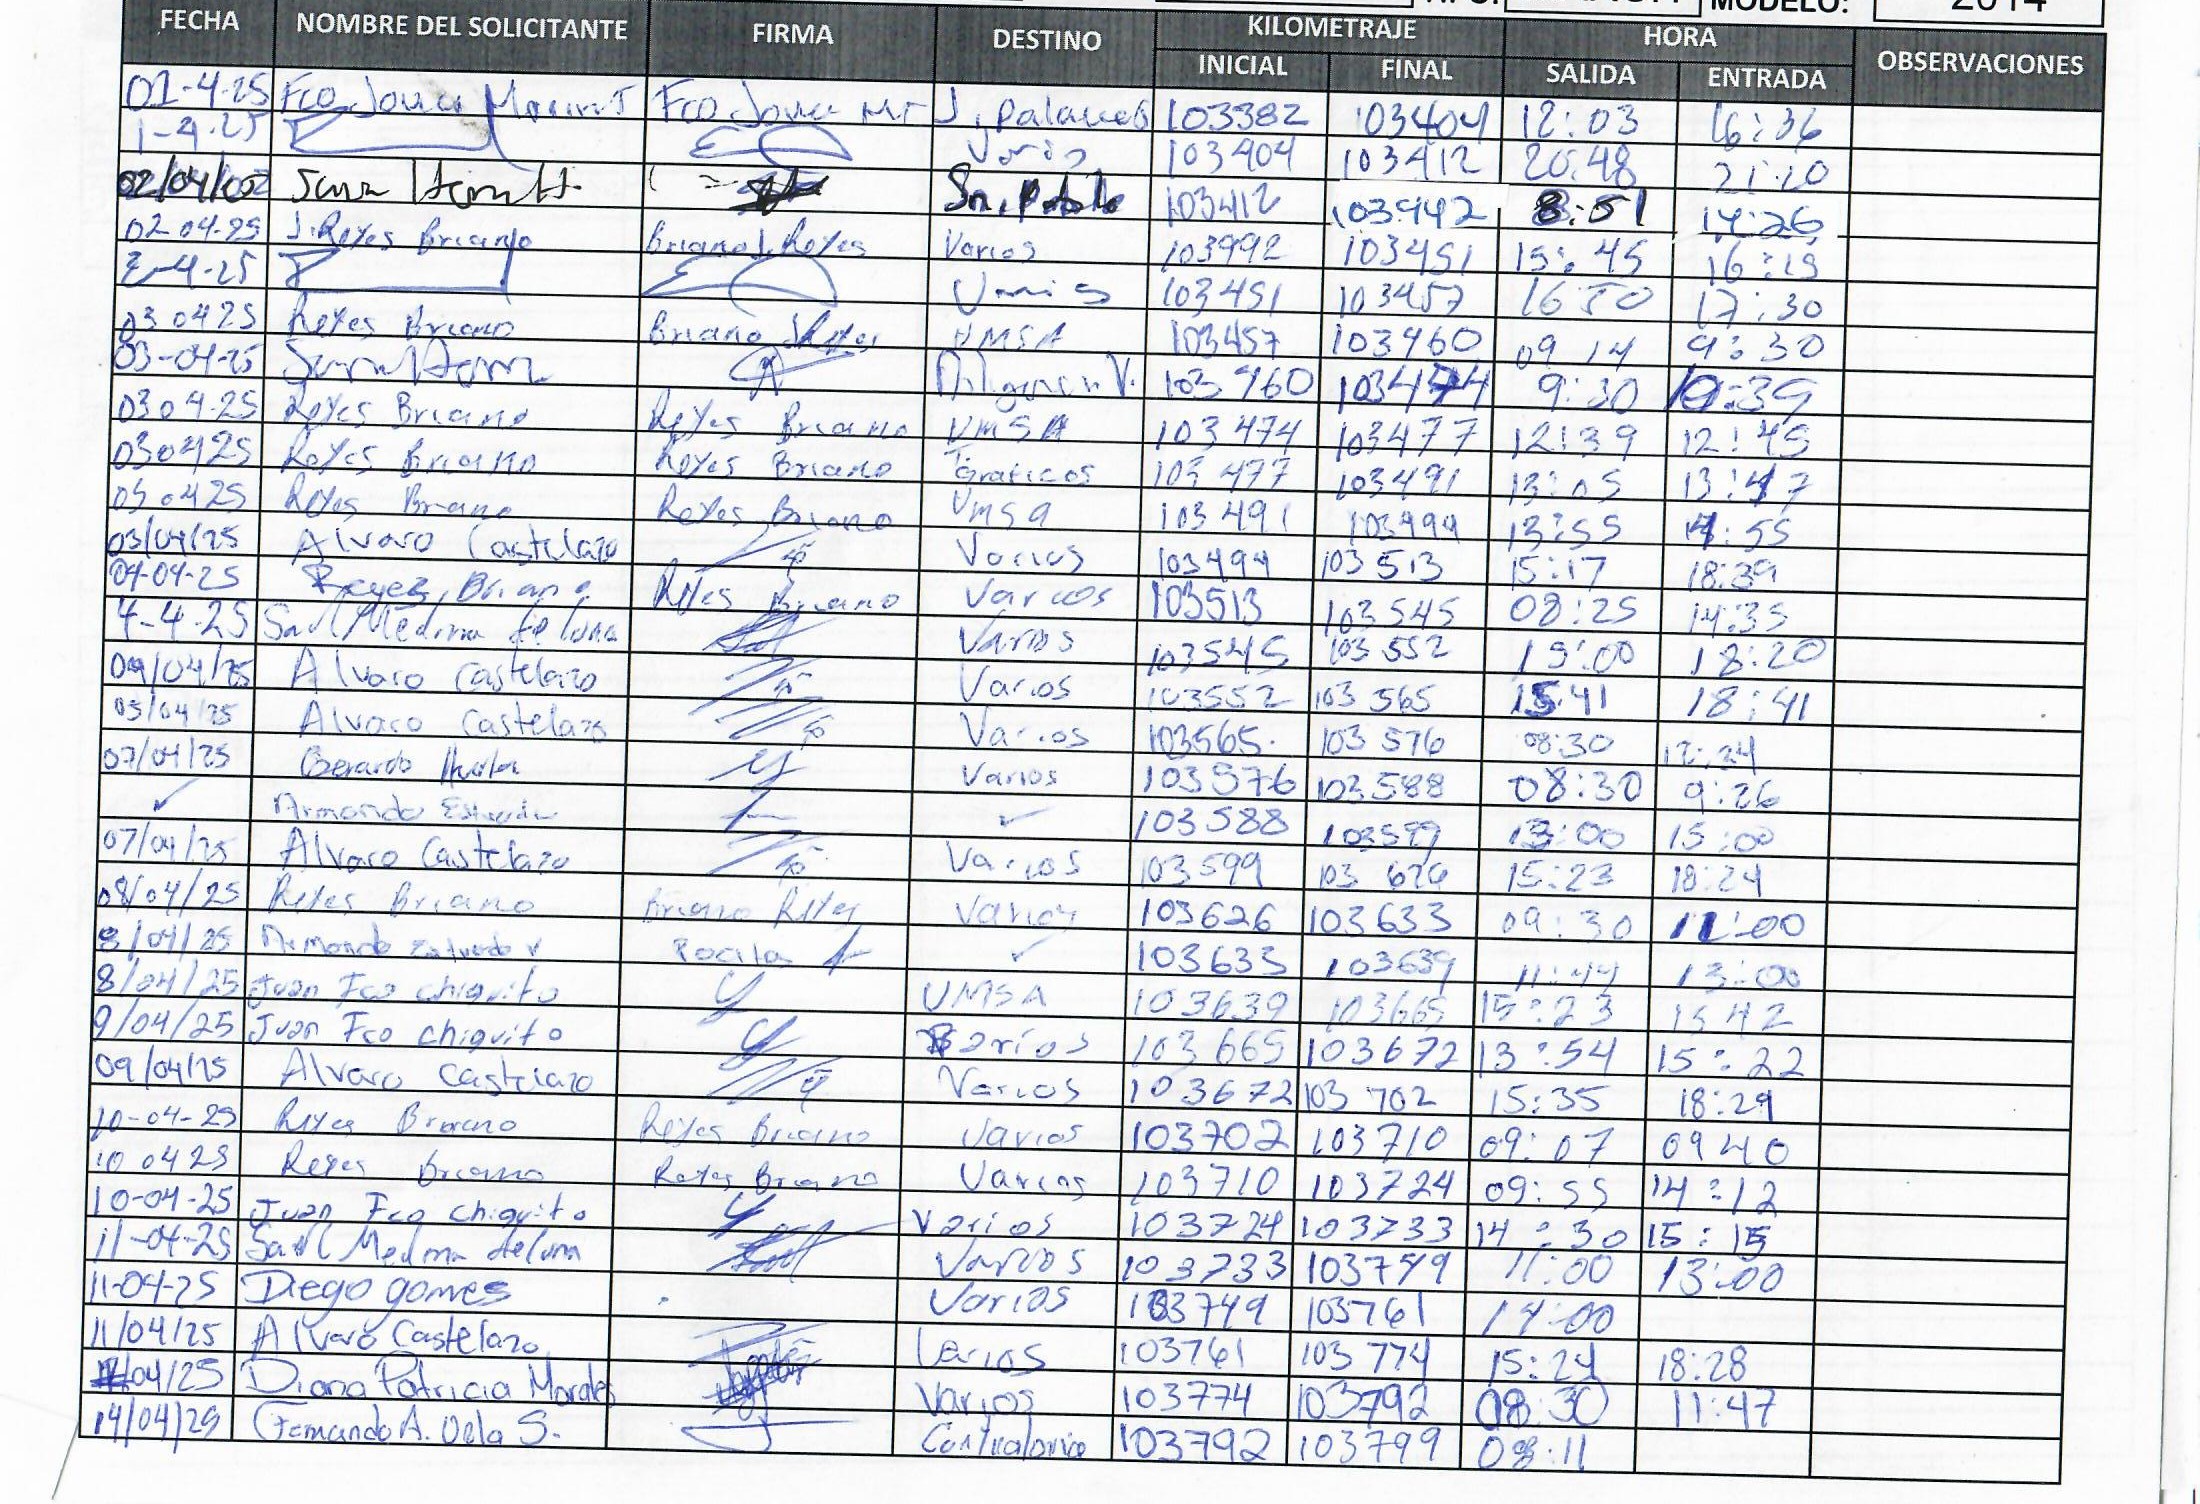 MODELO: 2014
FECHA NOMBRE DEL SOLICITANTE FIRMA DESTINO KILOMETRAJE HORA OBSERVACIONES
INICIAL FINAL SALIDA ENTRADA
01-4-25 Fco Javier Fco Javier J. Palacios 103382 103404 12:03 16:36
1-4-25 Varios 103404 103412 20:48 21:20
02/04/ 103412 103442 8:51 14:26
02 04-25 J. Reyes Briano Briano J. Reyes Varios 103442 103451 15:45 16:15
2-4-25 Varios 103451 103457 16 50 17:30
03 04 25 Reyes Briano Briano J Reyes UMSA 103457 103460 09 14 9:30
03-04-25 103460 103474 9:30 10:39
03 04-25 Reyes Briano Reyes Briano UMSA 103474 103477 12:39 12:45
03 04 25 Reyes Briano Reyes Briano Graficos 103477 103491 13:05 13:47
03 04 25 Reyes Briano Reyes Briano Umsa 103491 103499 13:55 14:55
03/04/25 Alvaro Castelazo Varios 103499 103513 15:17 18:39
04-04-25 Reyes Briano Reyes Briano Varios 103513 103545 08:25 14:35
4-4-25 Saul Medina de luna Varios 103545 103552 15:00 18:20
04/04/25 Alvaro Castelazo Varios 103552 103565 15:41 18:41
05/04/25 Alvaro Castelazo Varios 103565 103576 08:30 12:24
07/04/25 Gerardo Varios 103576 103588 08:30 9:26
✓ Armando Estrada ✓ 103588 103599 13:00 15:00
07/04/25 Alvaro Castelazo Varios 103599 103626 15:23 18:24
08/04/25 Reyes Briano Briano Reyes Varios 103626 103633 09:30 11:00
8/04/25 Armando ✓ 103633 103639 11:49 13:00
8/04/25 Juan Fco chiquito UMSA 103639 103665 15:23 15 42
9/04/25 Juan Fco chiquito Varios 103665 103672 13:54 15:22
09/04/25 Alvaro Castelazo Varios 103672 103702 15:35 18:29
10-04-25 Reyes Briano Reyes Briano Varios 103702 103710 09:07 09 40
10 04 25 Reyes Briano Reyes Briano Varios 103710 103724 09:55 14:12
10-04-25 Juan Fco chiquito Varios 103724 103733 14:30 15:15
11-04-25 Saul Medina deluna Varios 103733 103749 11:00 13:00
11-04-25 Diego gomes Varios 103749 103761 14:00
11/04/25 Alvaro Castelazo Varios 103761 103774 15:24 18:28
04/25 Diana Patricia Morales Varios 103774 103792 08:30 11:47
14/04/25 Fernando A. Contraloria 103792 103799 08:11